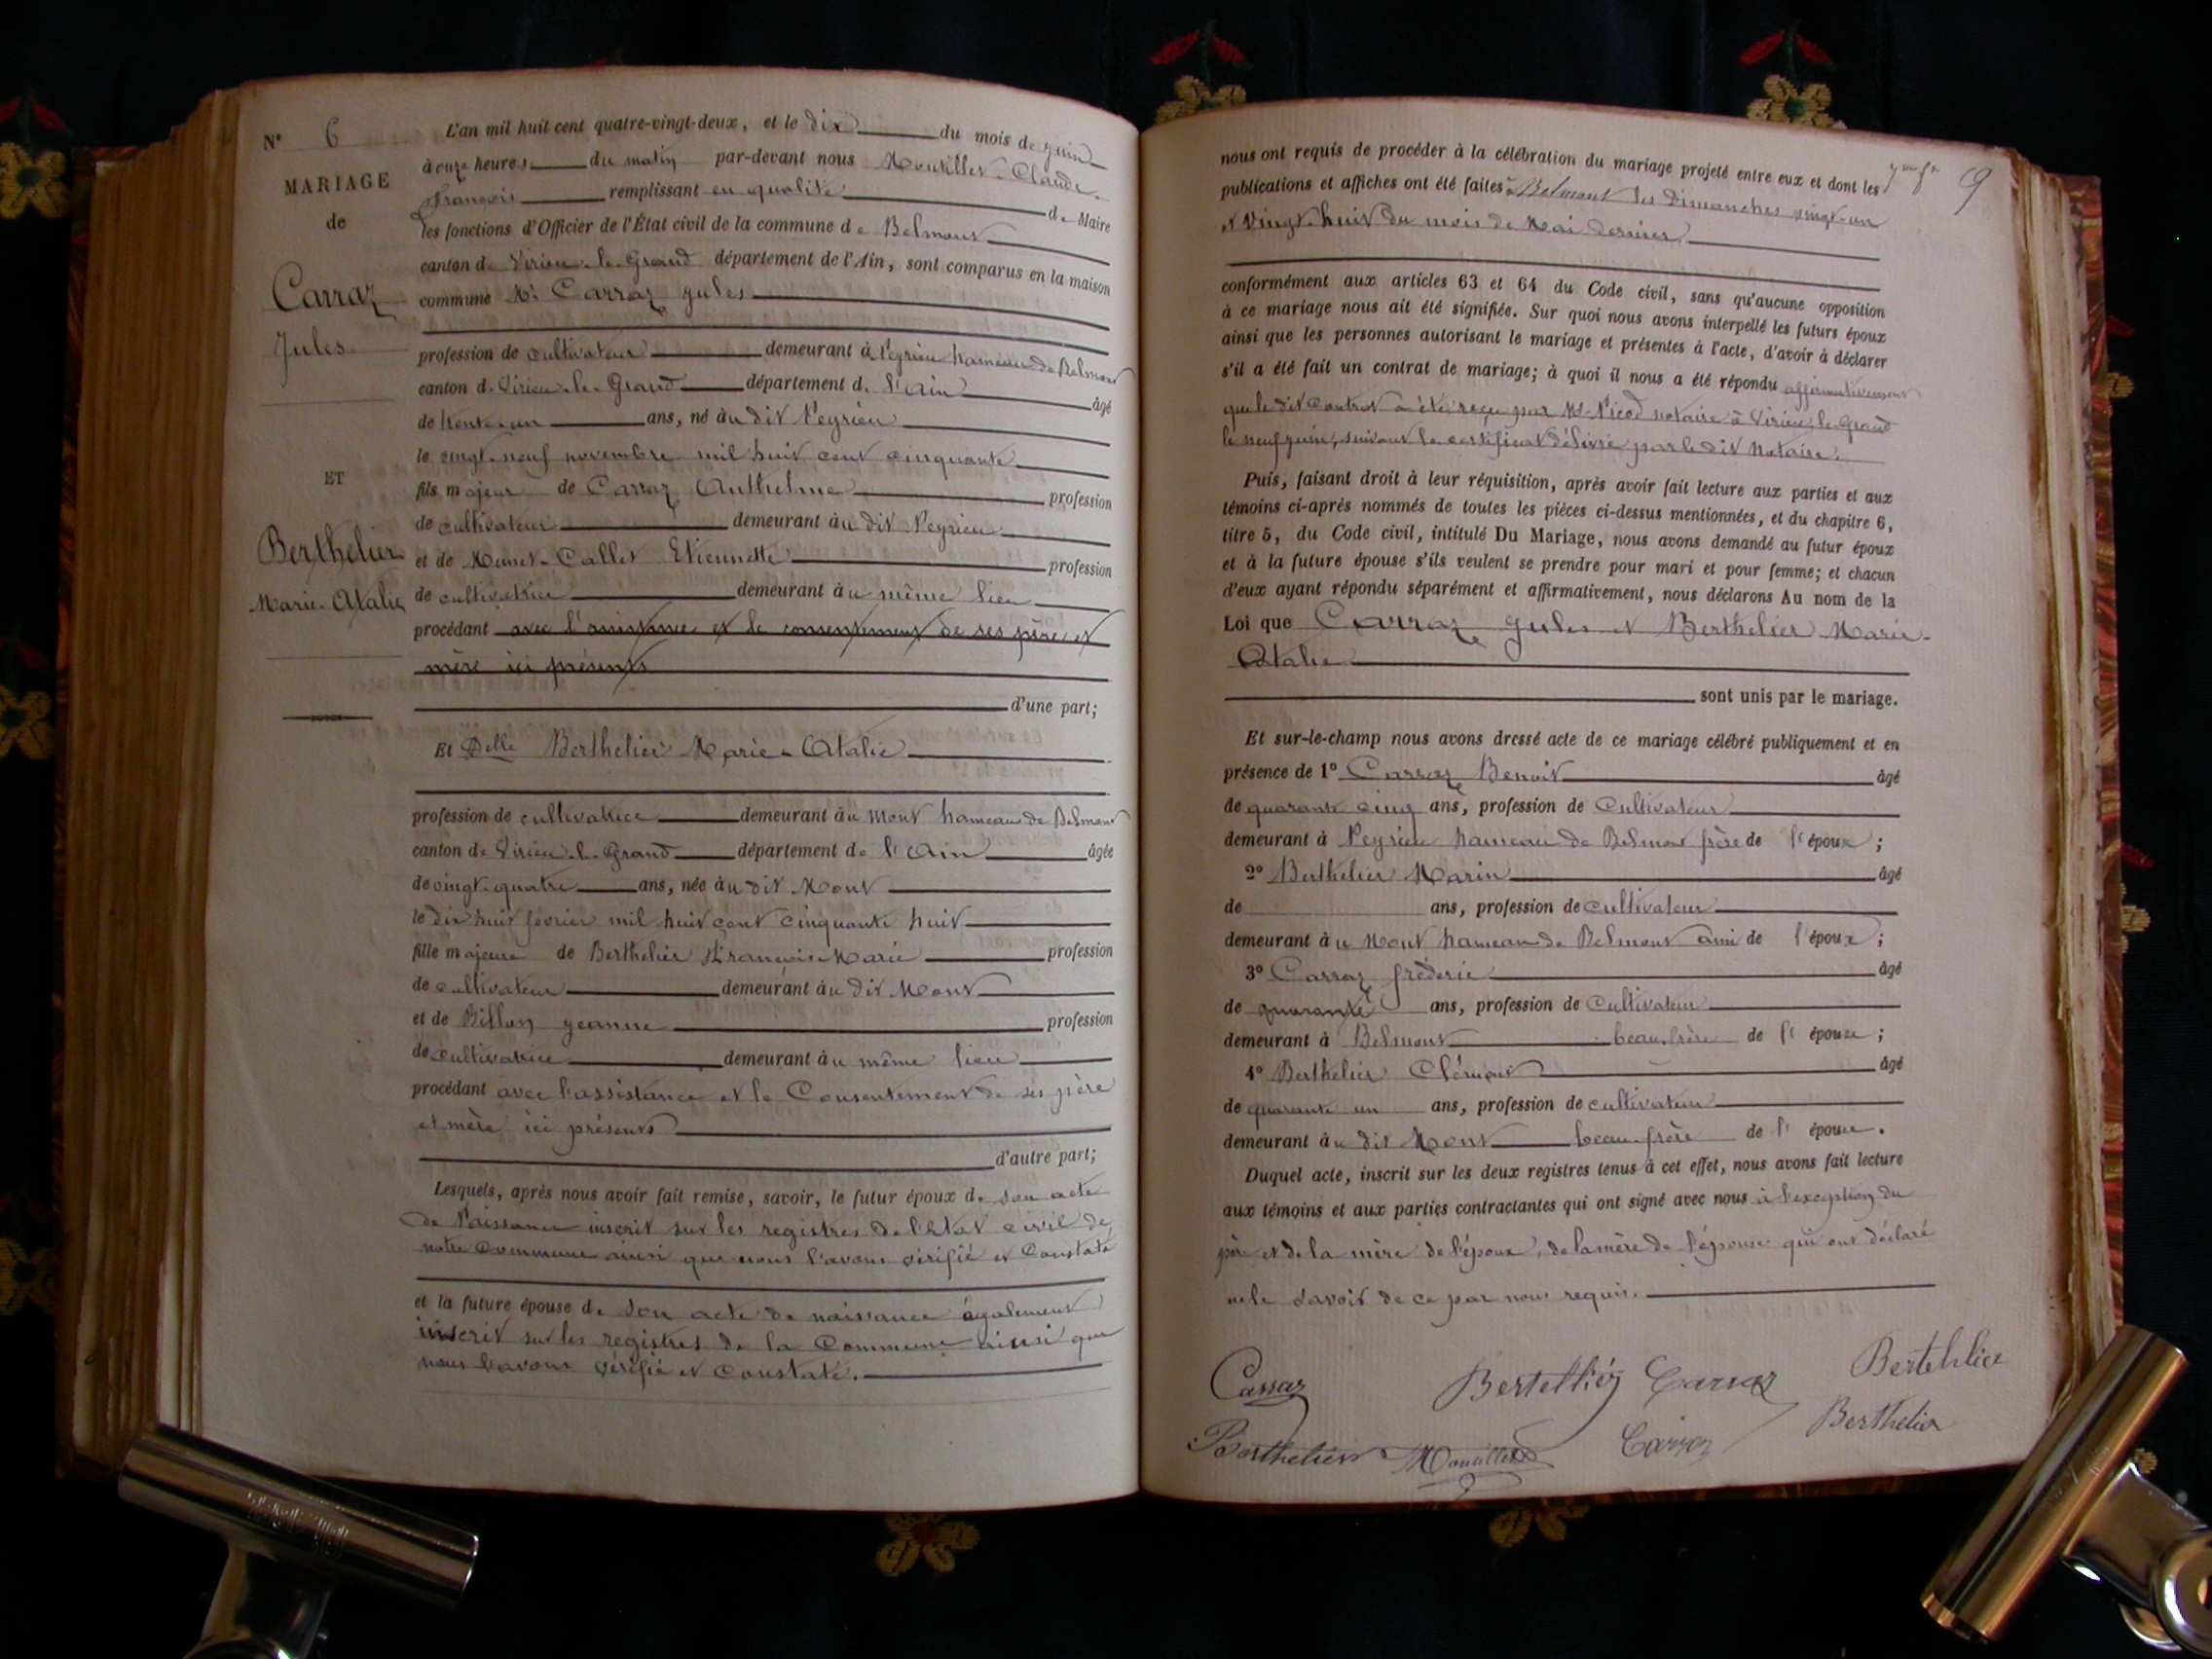 N° 6
MARIAGE
de
Carraz
Jules
ET
Berthelier
Marie-Atalie
L'an mil huit cent quatre-vingt-deux, et le dix du mois de juin
à onze heures du matin par-devant nous Moutillet Claude
françois remplissant en qualité de Maire
les fonctions d'Officier de l'État civil de la commune de Belmont
canton de Virieu-le-Grand département de l'Ain, sont comparus en la maison
commune Mr Carraz Jules
profession de cultivateur demeurant à Peyrieu hameau de Belmont
canton de Virieu-le-Grand département de l'Ain âgé
de trente-un ans, né au dit Peyrieu
le vingt-neuf novembre mil huit cent cinquante
fils majeur de Carraz Anthelme profession
de cultivateur demeurant au dit Peyrieu
et de Callet Etiennette profession
de cultivatrice demeurant au même lieu
procédant avec l'assistance et le consentement de ses père et
mère ici présents
d'une part;
Et Delle Berthelier Marie-Atalie
profession de cultivatrice demeurant au Mont hameau de Belmont
canton de Virieu-le-Grand département de l'Ain âgée
de vingt-quatre ans, née au dit Mont
le dix huit février mil huit cent cinquante huit
fille majeure de Berthelier François Marie profession
de cultivateur demeurant au dit Mont
et de Billon Jeanne profession
de cultivatrice demeurant au même lieu
procédant avec l'assistance et le Consentement de ses père
et mère ici présents
d'autre part;
Lesquels, après nous avoir fait remise, savoir, le futur époux de son acte
de Naissance inscrit sur les registres de l'Etat civil de
notre Commune ainsi que nous l'avons vérifié et Constaté
et la future épouse de son acte de naissance également
inscrit sur les registres de la Commune ainsi que
nous l'avons vérifié et Constaté.
9
nous ont requis de procéder à la célébration du mariage projeté entre eux et dont les
publications et affiches ont été faites à Belmont les dimanches vingt-un
et vingt-huit du mois de Mai dernier
conformément aux articles 63 et 64 du Code civil, sans qu'aucune opposition
à ce mariage nous ait été signifiée. Sur quoi nous avons interpellé les futurs époux
ainsi que les personnes autorisant le mariage et présentes à l'acte, d'avoir à déclarer
s'il a été fait un contrat de mariage; à quoi il nous a été répondu affirmativement
que le dit Contrat a été reçu par Me Picod notaire à Virieu-le-Grand
le neuf juin, suivant le certificat délivré par le dit Notaire.
Puis, faisant droit à leur réquisition, après avoir fait lecture aux parties et aux
témoins ci-après nommés de toutes les pièces ci-dessus mentionnées, et du chapitre 6,
titre 5, du Code civil, intitulé Du Mariage, nous avons demandé au futur époux
et à la future épouse s'ils veulent se prendre pour mari et pour femme; et chacun
d'eux ayant répondu séparément et affirmativement, nous déclarons Au nom de la
Loi que Carraz Jules et Berthelier Marie-
Atalie
sont unis par le mariage.
Et sur-le-champ nous avons dressé acte de ce mariage célébré publiquement et en
présence de 1° Carraz Benoit âgé
de quarante cinq ans, profession de Cultivateur
demeurant à Peyrieu hameau de Belmont frère de l'époux ;
2° Berthelier Marin âgé
de ans, profession de cultivateur
demeurant au Mont hameau de Belmont ami de l'époux ;
3° Carraz fréderic âgé
de quarante ans, profession de Cultivateur
demeurant à Belmont beau-frère de l'épouse ;
4° Berthelier Clément âgé
de quarante un ans, profession de cultivateur
demeurant au dit Mont beau-frère de l'épouse.
Duquel acte, inscrit sur les deux registres tenus à cet effet, nous avons fait lecture
aux témoins et aux parties contractantes qui ont signé avec nous à l'exception du
père et de la mère de l'époux, de la mère de l'épouse qui ont déclaré
ne le savoir de ce par nous requis.
Carraz Bertelliér Carraz Bertehlier
Berthelier Moutillet Carraz Berthelier